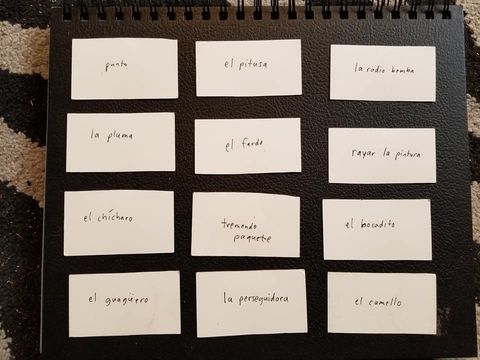 punto
el pitusa
la radio bemba
la pluma
el fardo
rayar la pintura
el chícharo
tremendo
paquete
el bocadito
el guagüero
la perseguidora
el camello